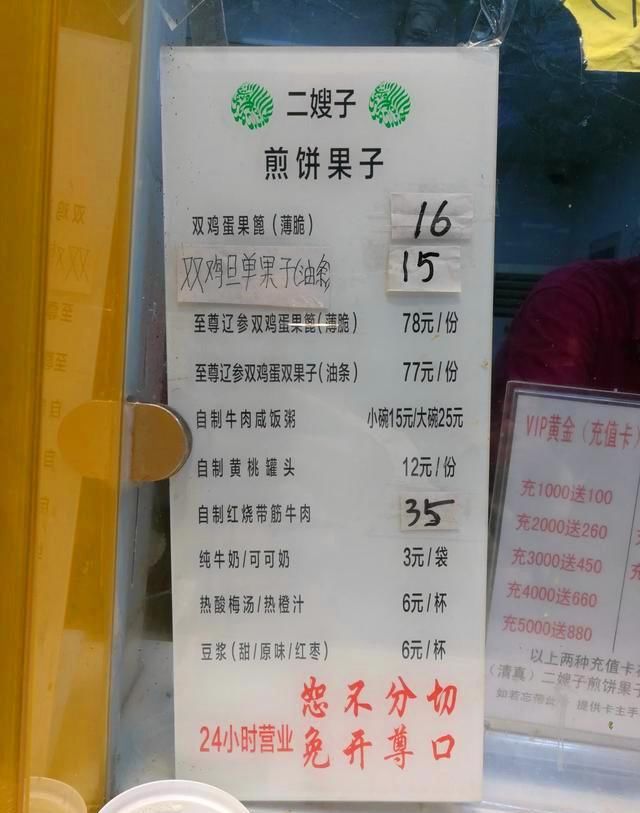 二嫂子
煎饼果子
双鸡蛋果篦(薄脆) 16
双鸡旦单果子(油条) 15
至尊辽参双鸡蛋果篦(薄脆) 78元/份
至尊辽参双鸡蛋双果子(油条) 77元/份
自制牛肉咸饭粥 小碗15元/大碗25元
自制黄桃罐头 12元/份
自制红烧带筋牛肉 35
纯牛奶/可可奶 3元/袋
热酸梅汤/热橙汁 6元/杯
豆浆(甜/原味/红枣) 6元/杯
24小时营业
恕不分切
免开尊口
VIP黄金(充值卡)
充1000送100
充2000送260
充3000送450
充4000送660
充5000送880
以上两种充值卡
(清真)二嫂子煎饼果子
如若忘带 提供卡主手